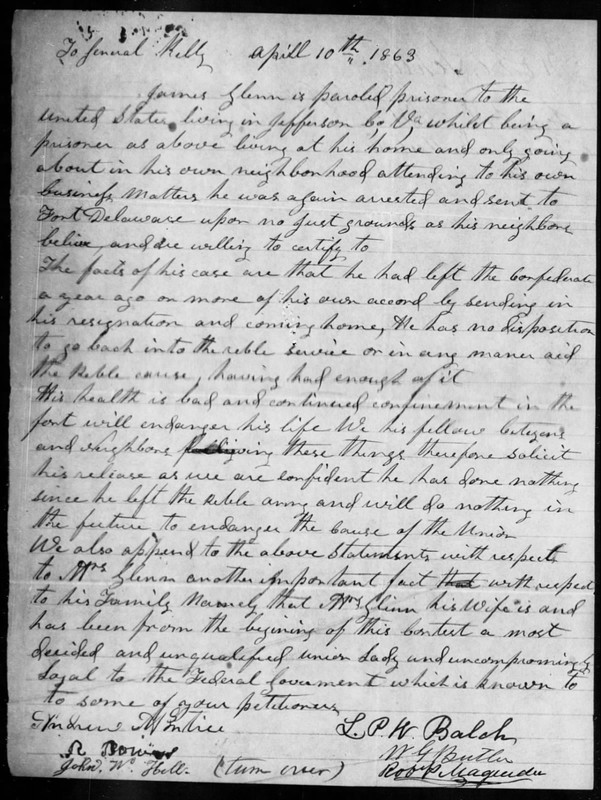 To General Kelly April 10th, 1863
James Glenn is paroled prisoner to the
United States living in Jefferson Co, Va whilst being a
prisoner as above living at his home and only going
about in his own neighborhood attending to his own
business Matters he was again arrested and sent to
Fort Delaware upon no just grounds as his neighbors
believe, and are willing to certify to
The facts of his case are that he had left the Confederate
a year ago or more of his own accord by sending in
his resignation and coming home, He has no disposition
to go back into the reble service or in any maner aid
the Reble cause, having had enough of it
His health is bad and continued confinement in the
fort will endanger his life We his fellow Citizens
and neighbors these things therefore solicit
his release as we are confident he has done nothing
since he left the reble army and will do nothing in
the fucture to endanger the Cause of the Union
We also append to the above Statements with respect
to Mrs Glenn another important fact that with respect
to his Family Namely that Mrs Glenn his Wife is and
has been from the begining of this contest a most
decided and unqualified union Lady and uncompromingly
Loyal to the Federal Government which is known to
to some of your petitioners
Andrew L.P.W. Balch
R W G Butler
John. W. Hill. (turn over) Rob P. Magruder